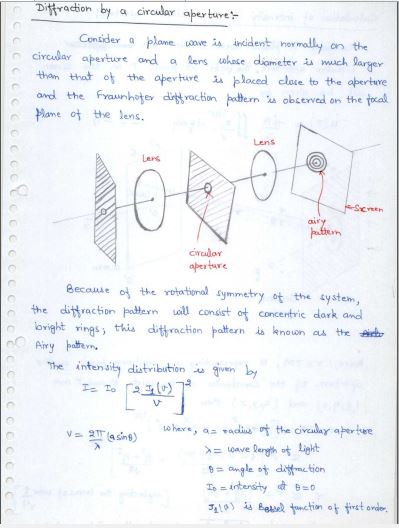 Diffraction by a circular aperture:-
Consider a plane wave is incident normally on the
circular aperture and a lens whose diameter is much larger
than that of the aperture is placed close to the aperture
and the Fraunhofer diffraction pattern is observed on the focal
plane of the lens.
Lens
Lens
Screen
airy
pattern
circular
aperture
Because of the rotational symmetry of the system,
the diffraction pattern will consist of concentric dark and
bright rings; this diffraction pattern is known as the
Airy pattern.
The intensity distribution is given by
I = I₀ [2 J₁(v) / v]²
v = 2π/λ (a sinθ) where, a = radius of the circular aperture
λ = wave length of light
θ = angle of diffraction
I₀ = intensity at θ=0
J₁(v) is Bessel function of first order.